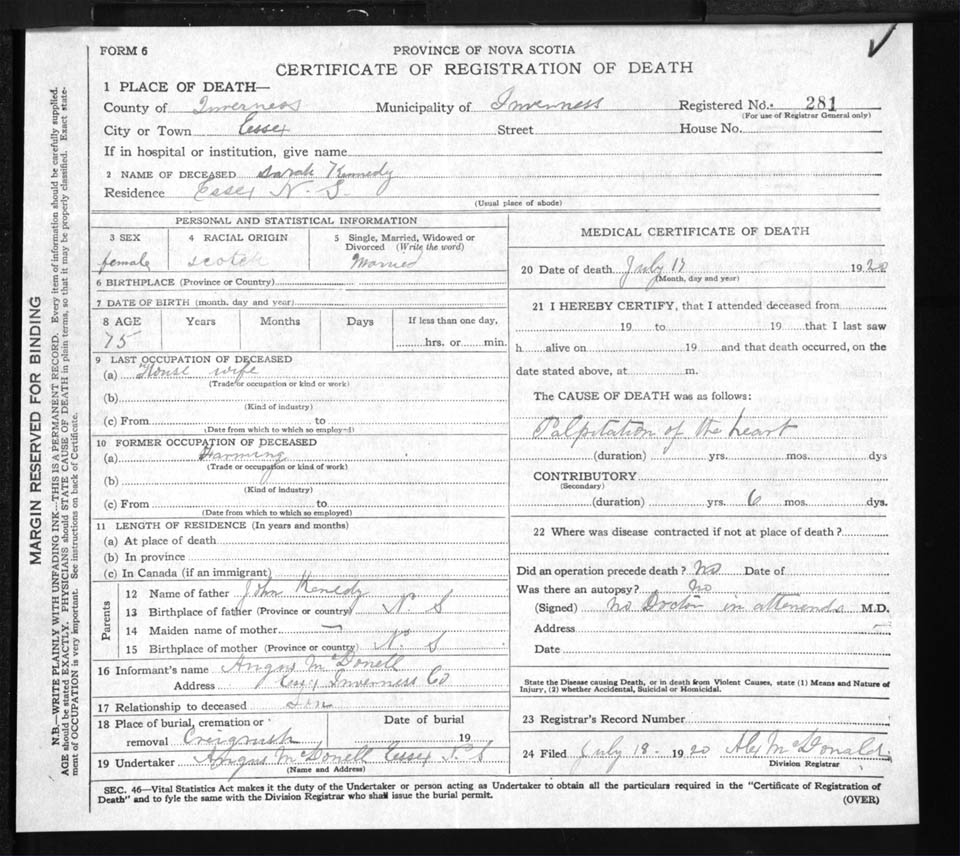 FORM 6
PROVINCE OF NOVA SCOTIA
CERTIFICATE OF REGISTRATION OF DEATH
1 PLACE OF DEATH—
County of Inverness Municipality of Inverness Registered No. 281
(For use of Registrar General only)
City or Town Essex Street House No.
If in hospital or institution, give name
2 NAME OF DECEASED Sarah Kennedy
Residence Essex N. S.
(Usual place of abode)
PERSONAL AND STATISTICAL INFORMATION
3 SEX 4 RACIAL ORIGIN 5 Single, Married, Widowed or
Divorced (Write the word)
female scotch Married
6 BIRTHPLACE (Province or Country)
7 DATE OF BIRTH (month, day and year)
8 AGE Years Months Days If less than one day,
75 hrs. or min.
9 LAST OCCUPATION OF DECEASED
(a) House wife
(Trade or occupation or kind or work)
(b)
(Kind of industry)
(c) From to
(Date from which to which so employed)
10 FORMER OCCUPATION OF DECEASED
(a) Farming
(Trade or occupation or kind of work)
(b)
(Kind of industry)
(c) From to
(Date from which to which so employed)
11 LENGTH OF RESIDENCE (In years and months)
(a) At place of death
(b) In province
(c) In Canada (if an immigrant)
Parents
12 Name of father John Kenedy
13 Birthplace of father (Province or country) N. S
14 Maiden name of mother —
15 Birthplace of mother (Province or country) N. S
16 Informant's name Angus McDonell
Address Essex Inverness Co
17 Relationship to deceased Son
18 Place of burial, cremation or Date of burial
removal 19
19 Undertaker Angus McDonell Essex N. S
(Name and Address)
MEDICAL CERTIFICATE OF DEATH
20 Date of death July 17 1920
(Month, day and year)
21 I HEREBY CERTIFY, that I attended deceased from
19 to 19 that I last saw
h alive on 19 and that death occurred, on the
date stated above, at m.
The CAUSE OF DEATH was as follows:
Palpitation of the heart
(duration) yrs. mos. dys
CONTRIBUTORY
(Secondary)
(duration) yrs. 6 mos. dys.
22 Where was disease contracted if not at place of death?
Did an operation precede death? No Date of
Was there an autopsy? No
(Signed) No Doctor in attenends M.D.
Address —
Date
State the Disease causing Death, or in death from Violent Causes, state (1) Means and Nature of
Injury, (2) whether Accidental, Suicidal or Homicidal.
23 Registrar's Record Number
24 Filed July 18 1920 Alex McDonald
Division Registrar
SEC. 46—Vital Statistics Act makes it the duty of the Undertaker or person acting as Undertaker to obtain all the particulars required in the "Certificate of Registration of
Death" and to fyle the same with the Division Registrar who shall issue the burial permit. (OVER)
MARGIN RESERVED FOR BINDING
N.B.—WRITE PLAINLY WITH UNFADING INK—THIS IS A PERMANENT RECORD. Every item of information should be carefully supplied.
AGE should be stated EXACTLY. PHYSICIANS should STATE CAUSE OF DEATH in plain terms, so that it may be properly classified. Exact state-
ment of OCCUPATION is very important. See instructions on back of Certificate.